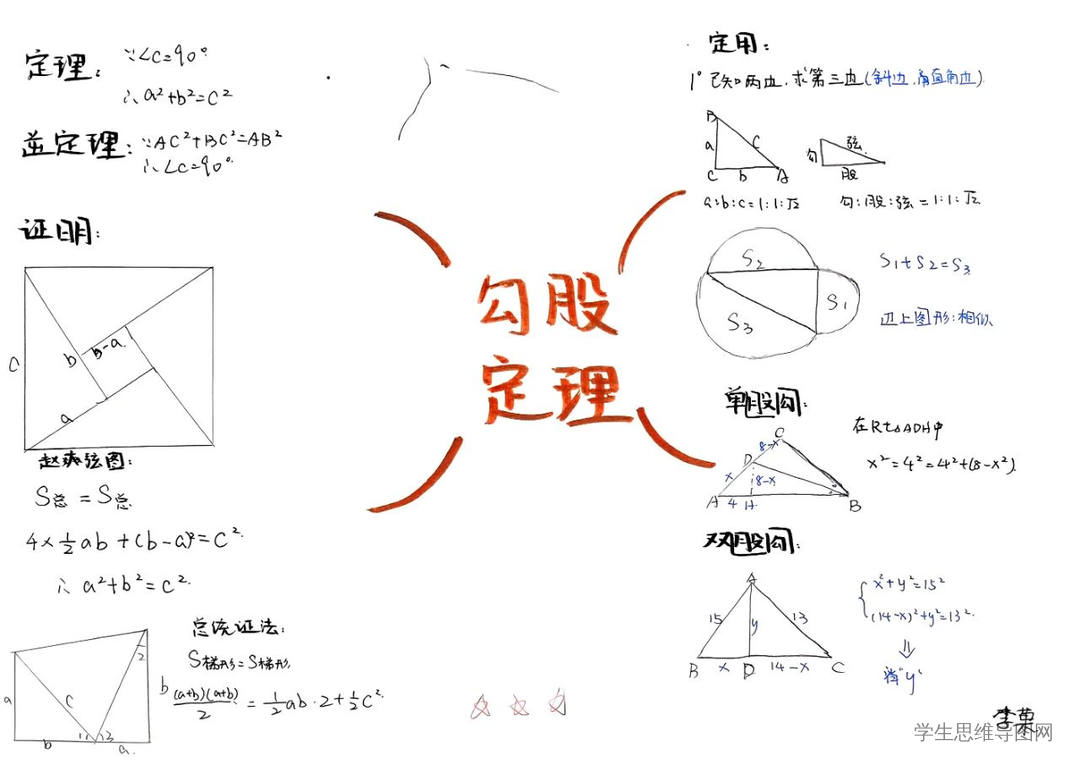 定理：∵∠C=90°
∴a²+b²=c²
逆定理：∵AC²+BC²=AB²
∴∠C=90°
证明：
C
b
b-a
a
赵爽弦图：
S总=S总
4×½ab+(b-a)²=c²
∴a²+b²=c²
总统证法：
S梯形=S梯形
(a+b)(a+b)/2=½ab·2+½c²
a
c
b
2
b
1
3
a
勾股
定理
定用：
1°已知两边，求第三边(斜边，直角边)
B
a
c
C
b
A
勾
弦
股
a:b:c=1:1:√2
勾:股:弦=1:1:√2
S₂
S₁
S₃
S₁+S₂=S₃
边上图形:相似
单股勾：
C
8-x
D
x
8-x
A
4
H
B
在Rt△ADH中
x²=4²=4²+(8-x²)
双股勾：
A
15
y
13
B
x
D
14-x
C
x²+y²=15²
(14-x)²+y²=13²
⇓
"y"
学生思维导图网